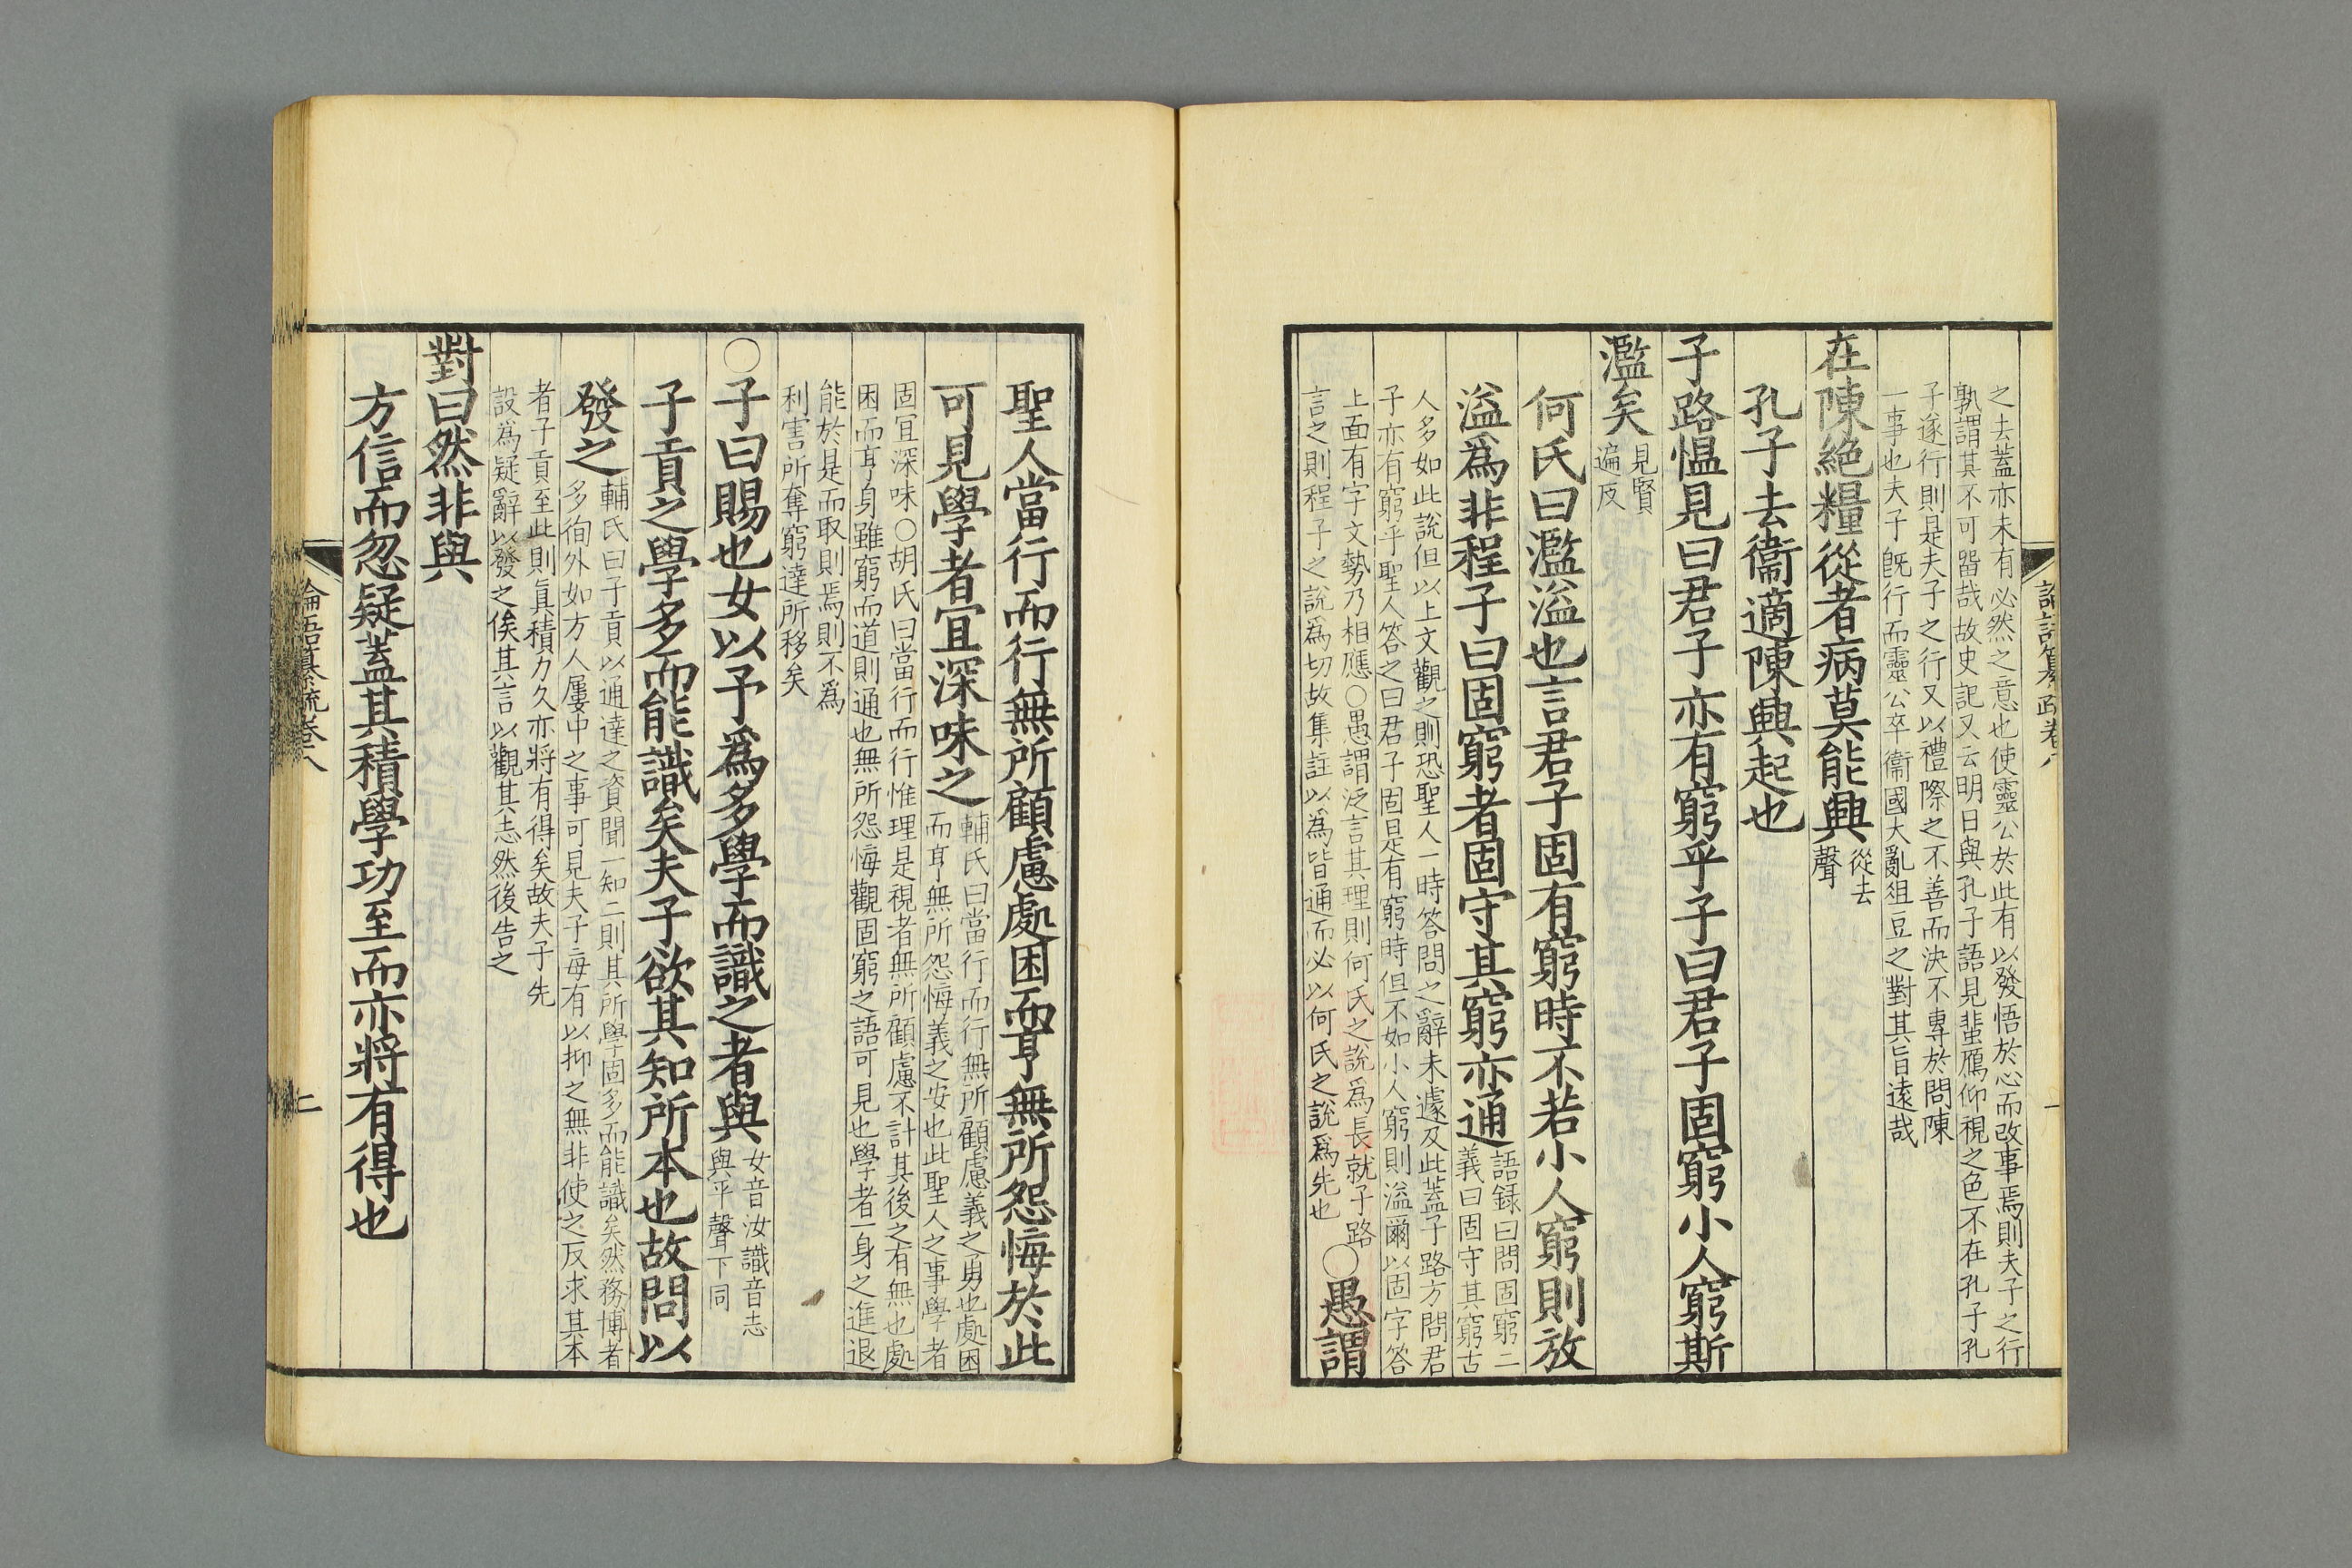 之去蓋亦未有必然之意也使靈公於此有以發悟於心而改事焉則夫子之行
孰謂其不可留哉故史記又云明日與孔子語見蜚鴈仰視之色不在孔子孔
子遂行則是夫子之行又以禮際之不善而決不專於問陳
一事也夫子旣行而靈公卒衞國大亂俎豆之對其旨遠哉
在陳絕糧從者病莫能興
從去
聲
孔子去衞適陳興起也
子路慍見曰君子亦有窮乎子曰君子固窮小人窮斯
濫矣
見賢
遍反
何氏曰濫溢也言君子固有窮時不若小人窮則放
溢爲非程子曰固窮者固守其窮亦通
語録曰問固窮二
義曰固守其窮古
人多如此說但以上文觀之則恐聖人一時答問之辭未遽及此蓋子路方問君
子亦有窮乎聖人答之曰君子固是有窮時但不如小人窮則溢爾以固字答
上面有字文勢乃相應○愚謂泛言其理則何氏之說爲長就子路
言之則程子之說爲切故集註以爲皆通而必以何氏之說爲先也
○愚謂
聖人當行而行無所顧慮處困而亨無所怨悔於此
可見學者宜深味之
輔氏曰當行而行無所顧慮義之勇也處困
而亨無所怨悔義之安也此聖人之事學者
固宜深味○胡氏曰當行而行惟理是視者無所顧慮不計其後之有無也處
困而亨身雖窮而道則通也無所怨悔觀固窮之語可見也學者一身之進退
能於是而取則焉則不爲
利害所奪窮達所移矣
○子曰賜也女以予爲多學而識之者與
女音汝識音志
與平聲下同
子貢之學多而能識矣夫子欲其知所本也故問以
發之
輔氏曰子貢以通達之資聞一知二則其所學固多而能識矣然務博者
多徇外如方人屢中之事可見夫子每有以抑之無非使之反求其本
者子貢至此則眞積力久亦將有得矣故夫子先
設爲疑辭以發之俟其言以觀其志然後告之
對曰然非與
方信而忽疑蓋其積學功至而亦將有得也
論語纂疏卷八